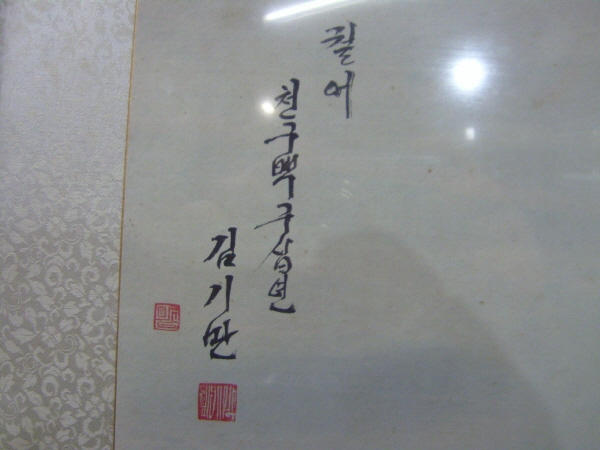 궐어
천구백구십년
김기만